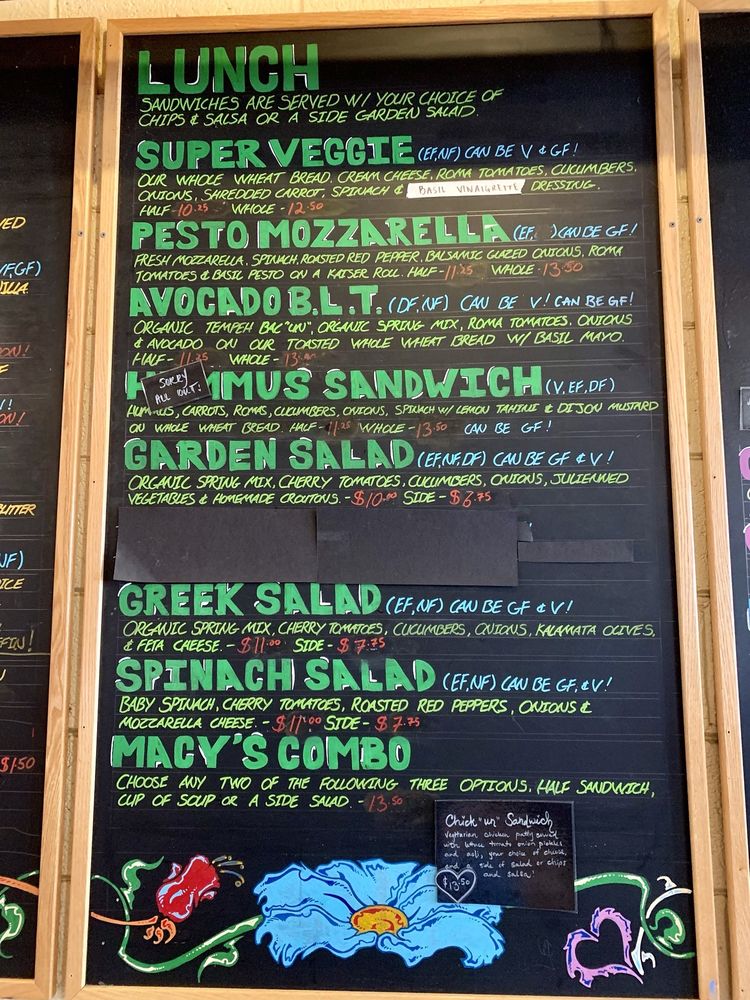 LUNCH
SANDWICHES ARE SERVED W/ YOUR CHOICE OF
CHIPS & SALSA OR A SIDE GARDEN SALAD.
SUPER VEGGIE (EF,NF) CAN BE V & GF!
OUR WHOLE WHEAT BREAD, CREAM CHEESE, ROMA TOMATOES, CUCUMBERS,
ONIONS, SHREDDED CARROT, SPINACH & BASIL VINAIGRETTE DRESSING.
HALF-10.25 WHOLE-12.50
PESTO MOZZARELLA (EF, ) CAN BE GF!
FRESH MOZZARELLA, SPINACH, ROASTED RED PEPPER, BALSAMIC GLAZED ONIONS, ROMA
TOMATOES & BASIL PESTO ON A KAISER ROLL. HALF-11.25 WHOLE-13.50
AVOCADO B.L.T. (DF,NF) CAN BE V! CAN BE GF!
ORGANIC TEMPEH BAC"UN", ORGANIC SPRING MIX, ROMA TOMATOES, ONIONS
& AVOCADO ON OUR TOASTED WHOLE WHEAT BREAD W/ BASIL MAYO.
HALF-11.25 WHOLE-13.
SORRY
ALL OUT!
HUMMUS SANDWICH (V, EF, DF)
HUMMUS, CARROTS, ROMAS, CUCUMBERS, ONIONS, SPINACH W/ LEMON TAHINI & DIJON MUSTARD
ON WHOLE WHEAT BREAD. HALF-11.25 WHOLE-13.50 CAN BE GF!
GARDEN SALAD (EF,NF,DF) CAN BE GF & V!
ORGANIC SPRING MIX, CHERRY TOMATOES, CUCUMBERS, ONIONS, JULIENNED
VEGETABLES & HOMEMADE CROUTONS.-$10.00 SIDE-$6.75
GREEK SALAD (EF,NF) CAN BE GF & V!
ORGANIC SPRING MIX, CHERRY TOMATOES, CUCUMBERS, ONIONS, KALAMATA OLIVES,
& FETA CHEESE.-$11.00 SIDE-$7.75
SPINACH SALAD (EF,NF) CAN BE GF, & V!
BABY SPINACH, CHERRY TOMATOES, ROASTED RED PEPPERS, ONIONS &
MOZZARELLA CHEESE.-$11.00 SIDE-$7.75
MACY'S COMBO
CHOOSE ANY TWO OF THE FOLLOWING THREE OPTIONS, HALF SANDWICH,
CUP OF SOUP OR A SIDE SALAD.-13.50
Chick"un" Sandwich
Vegetarian chicken patty served
with lettuce tomato onion pickles
and aoli, your choice of cheese
and a side of salad or chips
and salsa!
$13.50
$1.50